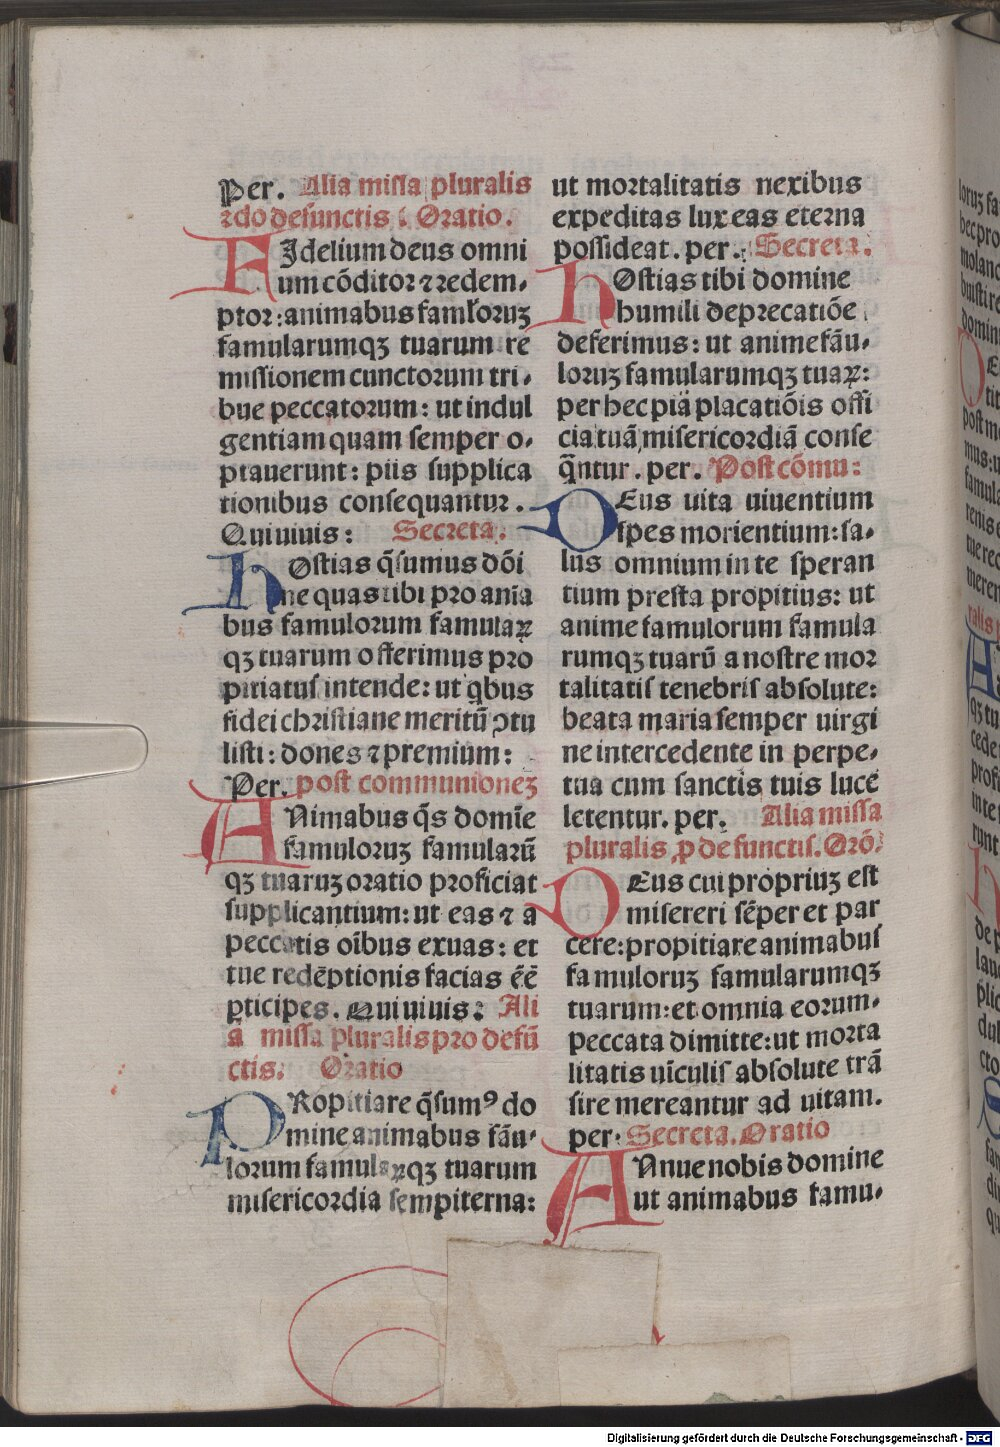 Per. Alia missa pluralis
ꝛdo defunctis : Oratio.
FIdelium deus omni
um cōditoꝛ ⁊ redem-
ptoꝛ: animabus famłoꝛuꝫ
famularumqꝫ tuarum re
missionem cunctorum tri-
bue peccatoꝛum: ut indul
gentiam quam semper o-
ptauerunt: piis supplica
tionibus consequantur.
Qui uiuis: Secreta.
hOstias q̄sumus dōi
ne quas tibi pꝛo anīa
bus famuloꝛum famulaꝝ
qꝫ tuarum offerimus pꝛo
pitiatus intende: ut q̇bus
fidei chꝛistiane meritū ꝯtu
listi: dones ⁊ pꝛemium:
Per. post communionez
ANimabus q̄s domīe
famuloꝛuꝫ famularū
qꝫ tuaruꝫ oratio pꝛoficiat
supplicantium: ut eas ⁊ a
peccatis oībus exuas: et
tue redēptionis facias eē
ꝑticipes. Qui uiuis: Ali
a missa pluralis pꝛo defū
ctis. Oratio
PRopitiare q̄sumꝰ do
mine animabus fāu-
lorum famulaꝝqꝫ tuarum
misericoꝛdia sempiterna:
ut moꝛtalitatis nexibus
expeditas lux eas eterna
possideat. per. Secreta.
hOstias tibi domine
humili depꝛecatiōe
deferimus: ut anime fāu-
loꝛuꝫ famularumqꝫ tuaꝝ:
per hec piā placatiōis offi
cia tuā misericoꝛdiā conse
q̄ntur. per. Post cōmu:
DEus uita uiuentium
spes moꝛientium: sa-
lus omnium in te speran
tium pꝛesta pꝛopitius: ut
anime famuloꝛum famula
rumqꝫ tuarū a nostre moꝛ
talitatis tenebris absolute:
beata maria semper uirgi
ne intercedente in perpe-
tua cum sanctis tuis luce
letentur. per. Alia missa
pluralis ꝓ defunctis. Oꝛō:
DEus cui pꝛopꝛiuꝫ est
misereri sēper et par
cere: pꝛopitiare animabus
famuloꝛuꝫ famularumqꝫ
tuarum: et omnia eoꝛum-
peccata dimitte: ut moꝛta
litatis uīculis absolute trā
sire mereantur ad uitam.
per. Secreta. Oratio
ANnue nobis domine
ut animabus famu-
Digitalisierung gefördert durch die Deutsche Forschungsgemeinschaft - DFG